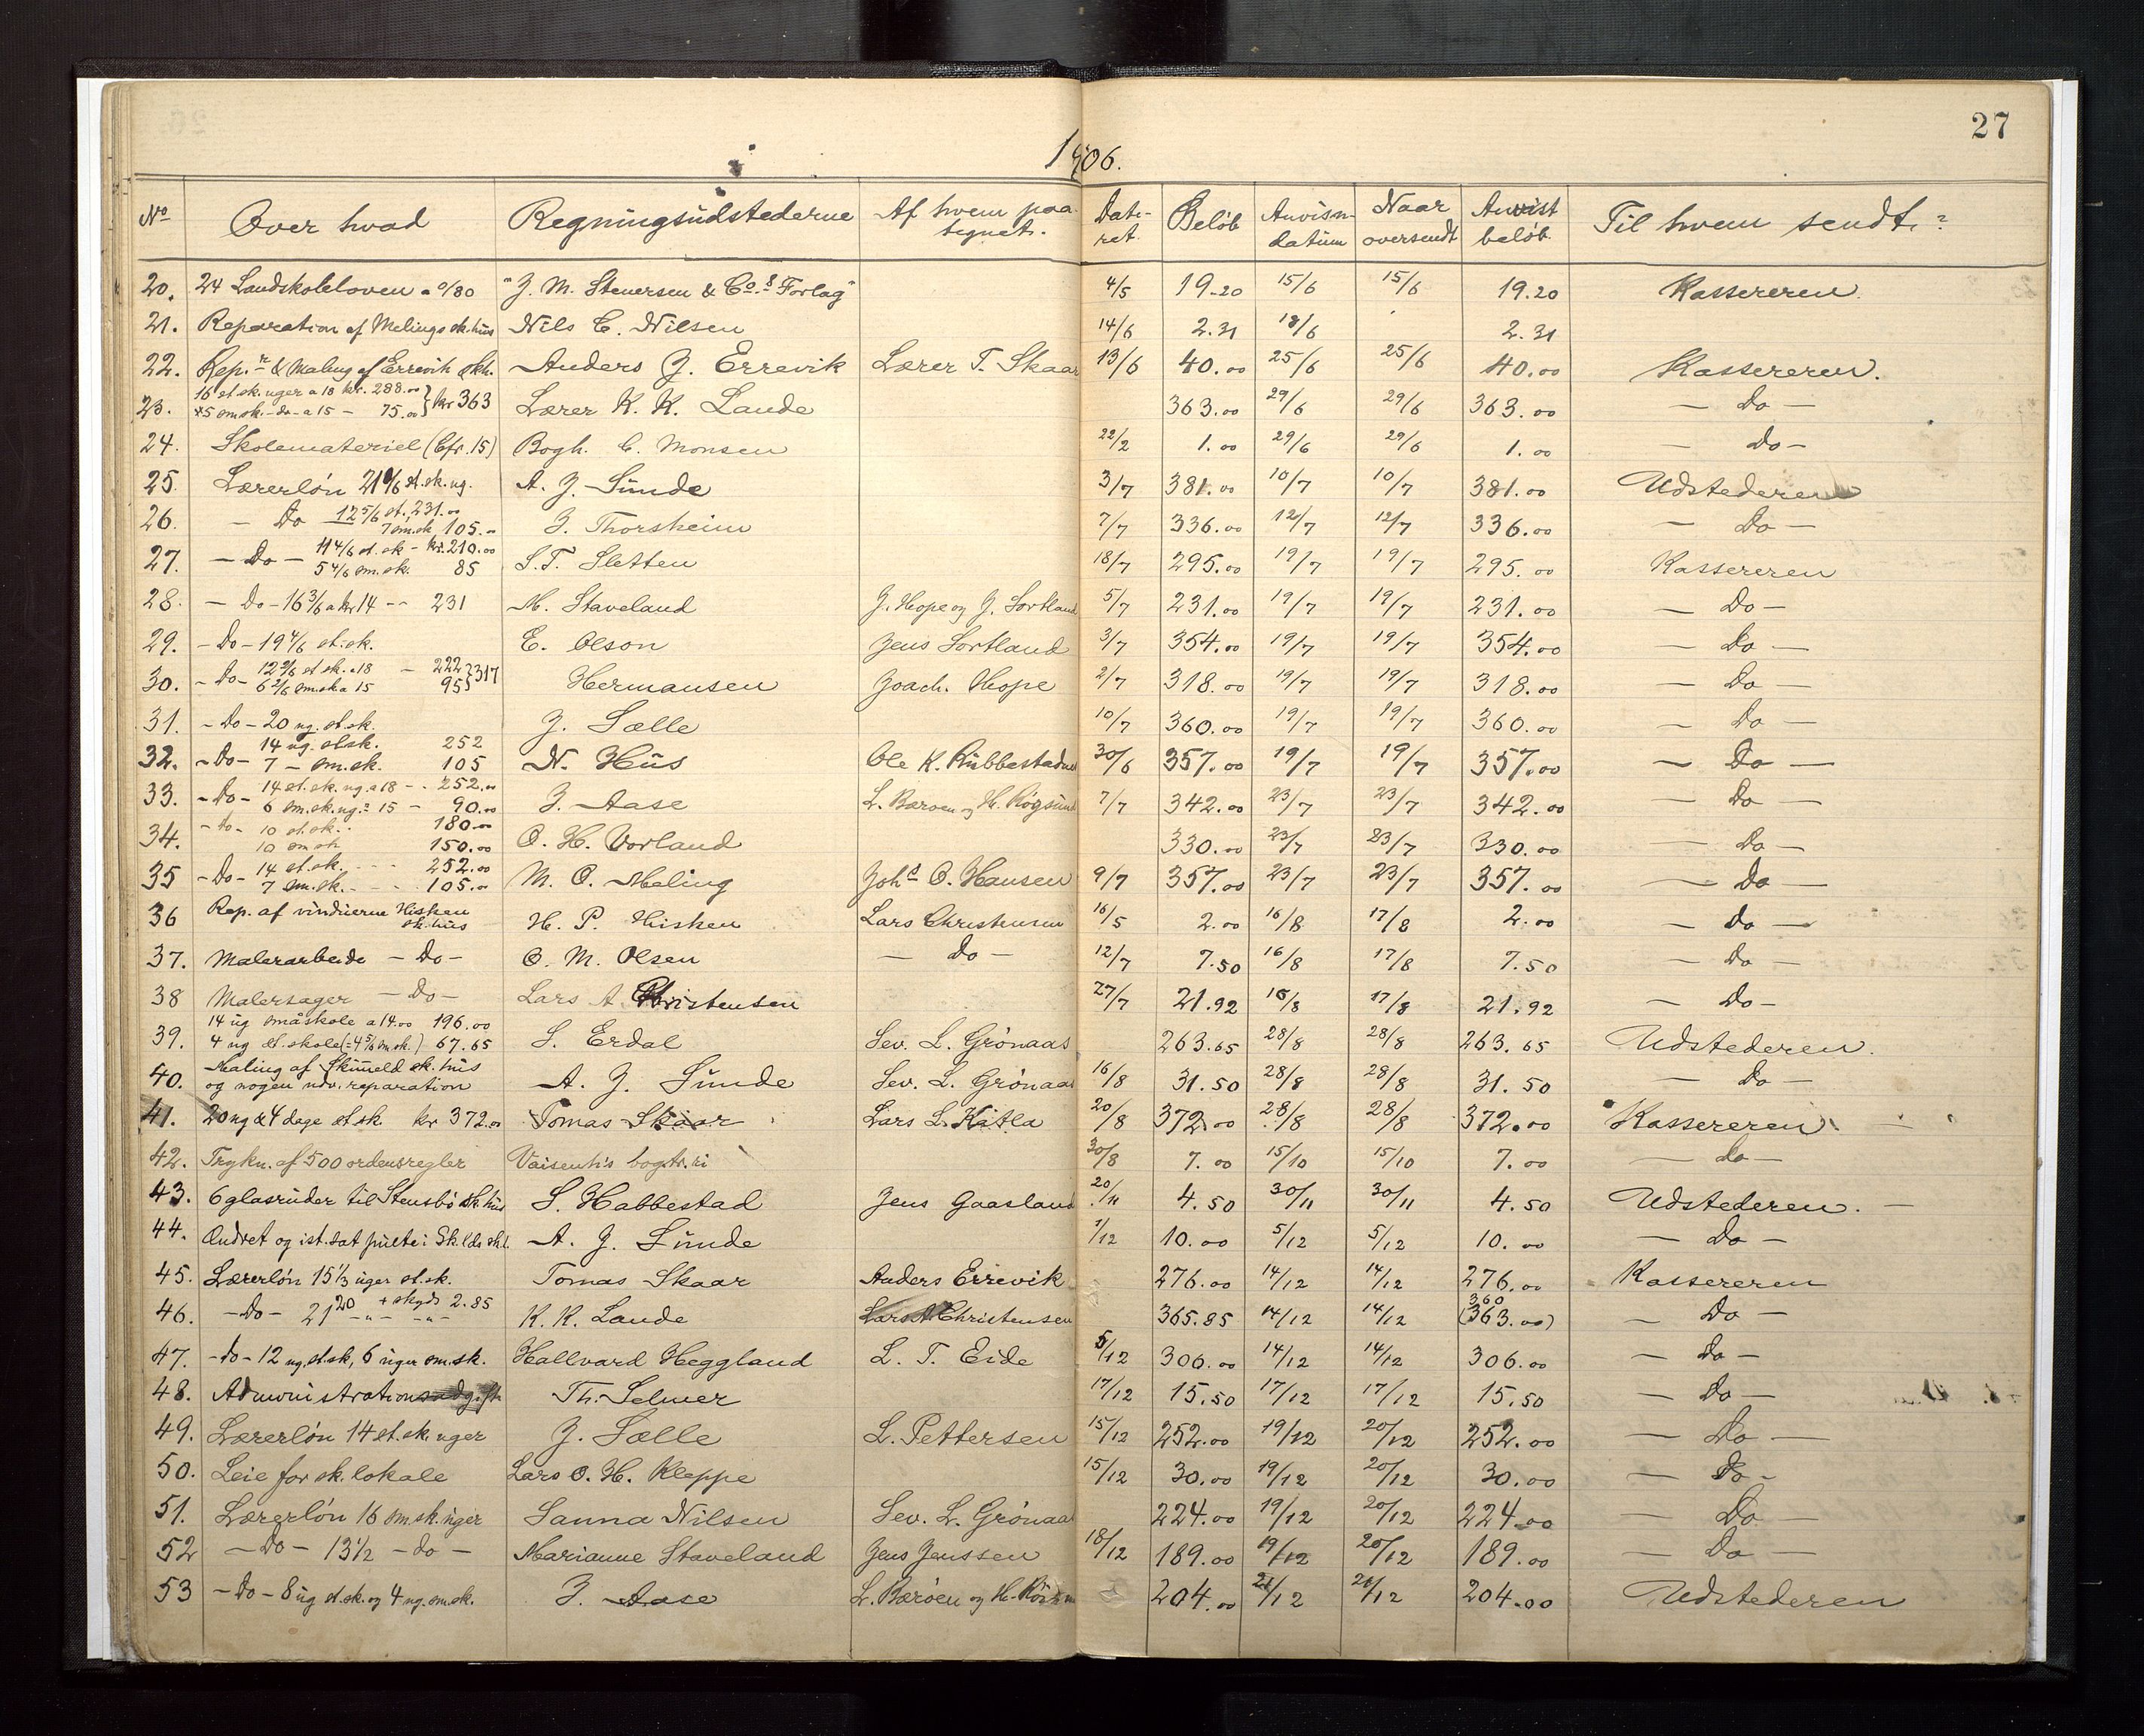 27
1906.
No Over hvad Regningsudstederne Af hvem paategnet. Dateret. Beløb Anvisn. datum Naar oversendt Anvist beløb. Til hvem sendt.
20. 24 Landskoleloven a 0/80 "J. M. Stenersen & Co.s Forlag" 4/5 19.20 15/6 15/6 19.20 Kassereren.
21. Reparation af Melings sk.hus Nils C. Nilsen 14/6 2.31 18/6 2.31
22. Rep.n & Maling af Errevik skh. Anders J. Errevik Lærer T. Skaar 13/6 40.00 25/6 25/6 40.00 Kassereren.
23. 16 st.sk.uger a 18 kr. 288.00 } kr 363
5 om.sk. - do - a 15 - 75.00 Lærer K. K. Lande 363.00 29/6 29/6 363.00 - Do -
24. Skolemateriel (Cfr. 15) Bogh. C. Monsen 22/2 1.00 29/6 29/6 1.00 - Do -
25. Lærerløn 21 1/6 st.sk.ug. A. J. Sunde 3/7 381.00 10/7 10/7 381.00 Udstederen
26. - Do - 12 5/6 st. 231.00
7 om.sk 105.00 J. Thorsheim 7/7 336.00 12/7 12/7 336.00 - Do -
27. - Do - 11 4/6 st.sk - kr. 210.00
5 4/6 om.sk. 85 S. T. Sletten 18/7 295.00 19/7 19/7 295.00 Kassereren
28. - Do - 16 3/6 a kr 14 -- 231 M. Staveland J. Hope og J. Sortland 5/7 231.00 19/7 19/7 231.00 - Do -
29. - Do - 19 4/6 st.sk. E. Olson Jens Sortland 3/7 354.00 19/7 19/7 354.00 - Do -
30. - Do - 12 2/6 st.sk. a 18 - 222 } 317
6 2/6 om.sk a 15 95 Hermansen Joach. Hope 2/7 318.00 19/7 19/7 318.00 - Do -
31. - Do - 20 ug. st.sk. J. Sælle 10/7 360.00 19/7 19/7 360.00 - Do -
32. - Do - 14 ug. st.sk. 252
7 - om.sk. 105 N. Hus Ole K. Rubbestadn 30/6 357.00 19/7 19/7 357.00 - Do -
33. - Do - 14 st.sk.ug. a 18 - 252.00
6 om.sk.ug. 15 - 90.00 J. Aase L. Bærøen og H. Røgsund 7/7 342.00 23/7 23/7 342.00 - Do -
34. - do - 10 st.sk. 180.00
10 om sk 150.00 O. H. Vorland 330.00 23/7 23/7 330.00 - Do -
35 - Do - 14 st.sk. 252.00
7 om.sk. 105.00 M. O. Meling Johs O. Hansen 9/7 357.00 23/7 23/7 357.00 - Do -
36 Rep. af vinduerne Hisken
sk.hus H. P. Hisken Lars Christensen 16/5 2.00 16/8 17/8 2.00 - Do -
37. Malerarbeide - Do - O. M. Olsen - Do - 12/7 7.50 16/8 17/8 7.50 - Do -
38 Malersager - Do - Lars A. Christensen 27/7 21.92 16/8 17/8 21.92 - Do -
39. 14 ug småskole a 14.00 196.00
4 ug st.skole (= 4 5/6 om.sk.) 67.65 S. Erdal Sev. L. Grønaas 263.65 28/8 28/8 263.65 Udstederen.
40. Maling af Skimmeld sk.hus
og nogen udv. reparation A. J. Sunde Sev. L. Grønaas 16/8 31.50 28/8 28/8 31.50 - Do -
41. 20 ug & 4 dage st.sk kr 372.00 Tomas Skaar Lars L. Katla 20/8 372.00 28/8 28/8 372.00 Kassereren. -
42. Trykn. af 500 ordensregler Vaisenh's bogtr.ki 30/8 7.00 15/10 15/10 7.00 - do -
43. 6 glasruder til Stensbø sk.hus S. Habbestad Jens Gaasland 20/11 4.50 30/11 30/11 4.50 Udstederen. -
44. Ændret og ist.sat pulte i Sk.lds skh. A. J. Sunde 1/12 10.00 5/12 5/12 10.00 - Do -
45. Lærerløn 15 1/3 uger st.sk. Tomas Skaar Anders Errevik 276.00 14/12 14/12 276.00 Kassereren
46. - Do - 21 20 -"- + skyds 2.85 -"- K. K. Lande Lars A. Christensen 365.85 14/12 14/12 360 (363.00) - Do -
47. - do - 12 ug. st.sk, 6 uger om.sk. Hallvard Heggland L. T. Eide 5/12 306.00 14/12 14/12 306.00 - Do -
48. Administrationsudgift Th. Selmer 17/12 15.50 17/12 17/12 15.50 - Do -
49. Lærerløn 14 st.sk. uger J. Sælle L. Pettersen 15/12 252.00 19/12 20/12 252.00 - Do -
50. Leie for sk.lokale Lars O. H. Kleppe 15/12 30.00 19/12 20/12 30.00 - Do -
51. Lærerløn 16 om.sk. uger Sanna Nilsen Sev. L. Grønaas 224.00 19/12 20/12 224.00 - Do -
52 - Do - 13 1/2 - do - Marianne Staveland Jens Jenssen 18/12 189.00 19/12 20/12 189.00 - Do -
53 - Do - 8 ug st.sk. og 4 ug. om.sk. J. Aase L. Bærøen og H. 204.00 21/12 21/12 204.00 Udstederen